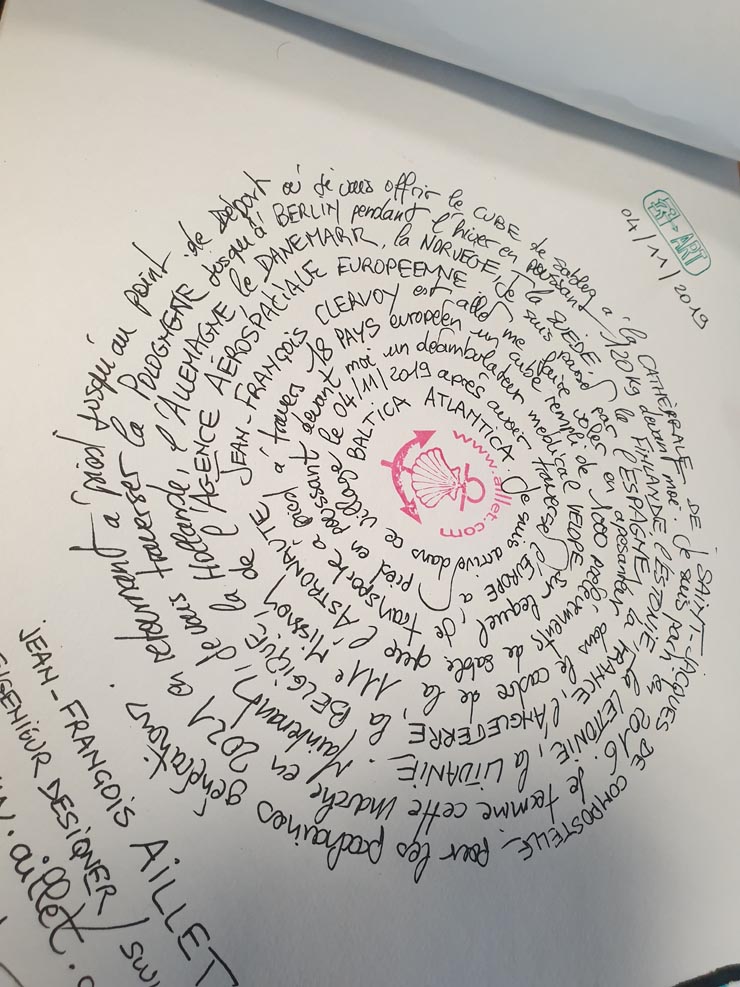 04/11/2019
ART
www.aillet.com
BALTICA ATLANTICA. Je suis arrivé dans ce village
le 04/11/2019 après avoir traversé l'EUROPE à pied en poussant
devant moi un déambulateur médical VELOPE sur lequel je transporte à pied à travers
18 PAYS européen un cube rempli de 1000 prélèvements de sable que l'ASTRONAUTE
JEAN-FRANÇOIS CLERVOY est allé me faire voler en apesanteur dans le cadre de la 111e Mission de
l'AGENCE AÉROSPACIALE EUROPEENNE. Je suis passé par l'ESPAGNE, la FRANCE, l'ANGLETERRE, la BELGIQUE, la HOLLANDE,
l'ALLEMAGNE le DANEMARK, la NORVEGE, la SUÈDE, la FINLANDE l'ESTONIE, la LETTONIE, la LITANIE. Maintenant, je vais traverser la POLOGNE
jusqu'à BERLIN pendant l'hiver en poussant 120 kg devant moi. Je suis parti en 2016. Je termine cette marche en 2021 en retournant à pied jusqu'au point de départ
où je vais offrir le CUBE de sables à la CATHÈDRALE DE SAINT-JACQUES DE COMPOSTELLE pour les prochaines générations.
JEAN-FRANÇOIS AILLET
DESIGNER /
aillet.